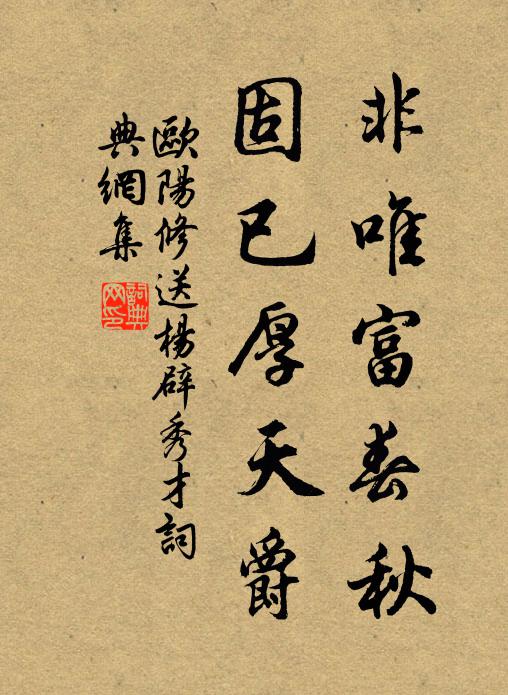 非唯富春秋
固已厚天爵
歐陽修送楊辟秀才詞
典網集
詞典网印